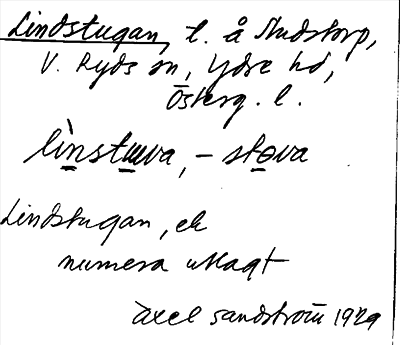 Lindstugan, t. å Rudstorp,
V. Ryds sn, Ydre hd,
Österg. l.
lìnstɯva, – stova
Lindstugan, ek
numera utlagt
Axel Sandström 1929